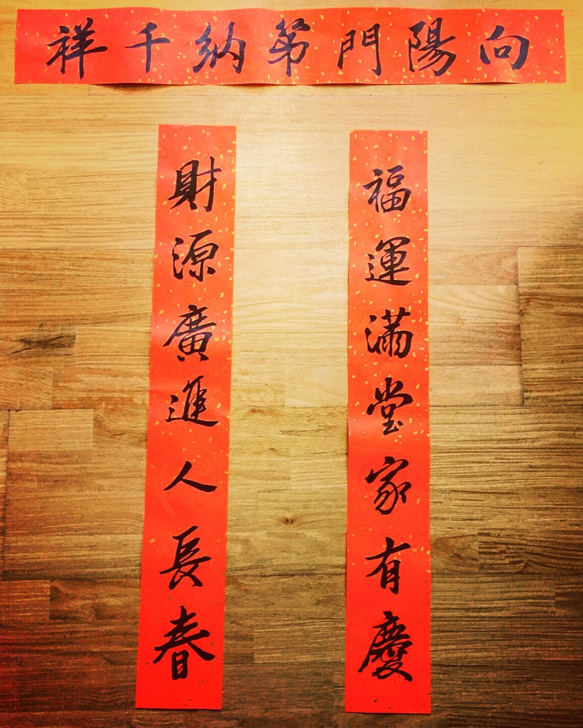 向陽門第納千祥
福運滿堂家有慶
財源廣進人長春